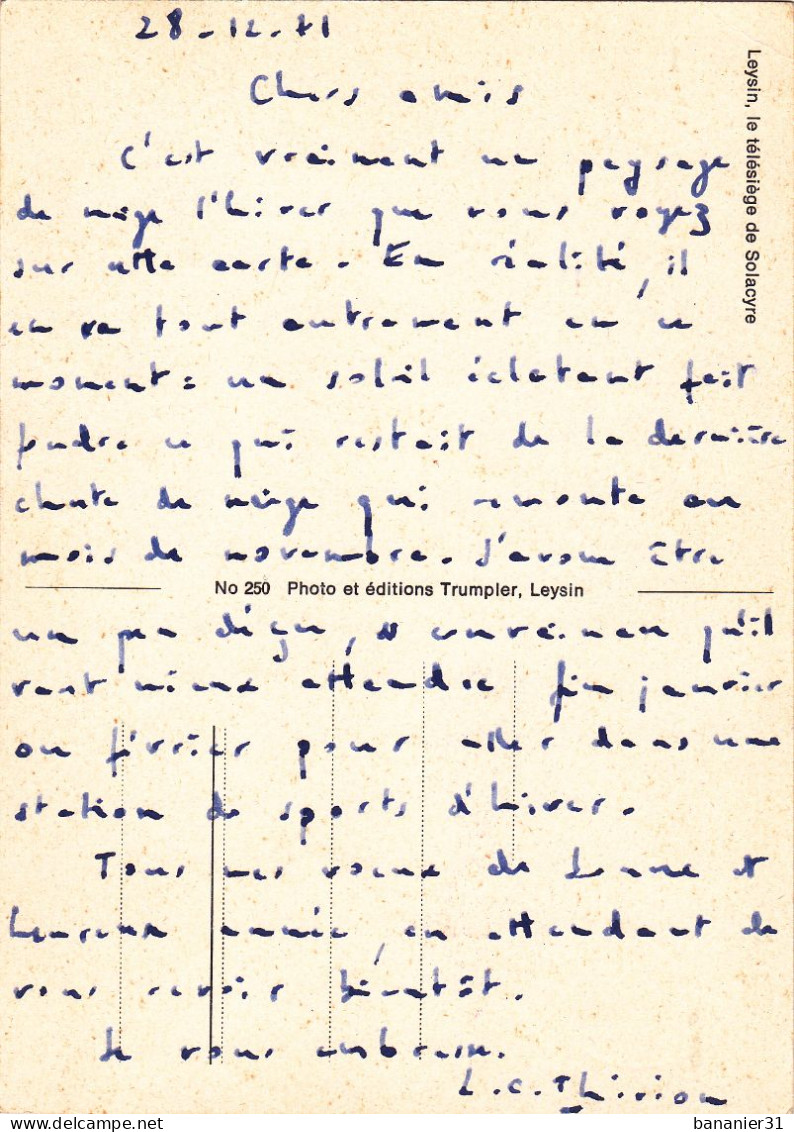 28-12-71
Chers amis
C'est vraiment un paysage
de neige l'hiver que vous voyez
sur cette carte. En réalité, il
en va tout autrement en ce
moment : un soleil éclatant fait
fondre ce qui restait de la dernière
chute de neige qui remonte au
mois de novembre. J'avoue être
un peu déçu, et convaincu qu'il
vaut mieux attendre fin janvier
ou février pour aller dans une
station de sports d'hiver.
Tous mes voeux de bonne et
heureuse année, en attendant de
vous revoir bientôt.
Je vous embrasse.
L.C. Thirion
Leysin, le télésiège de Solacyre
No 250 Photo et éditions Trumpler, Leysin
bananier31